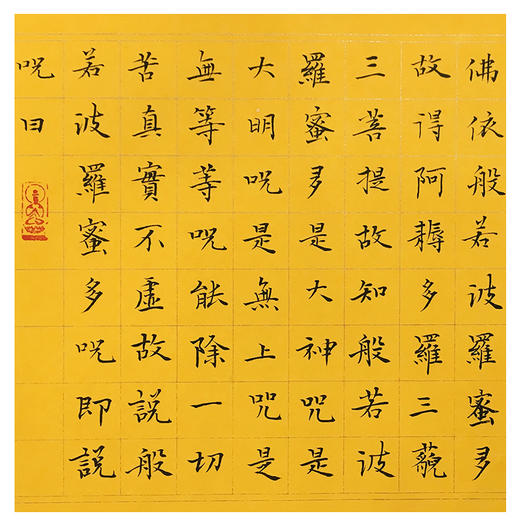 佛依般若波羅蜜多
故得阿耨多羅三藐
三菩提故知般若波
羅蜜多是大神呪是
大明呪是無上咒是
無等等呪能除一切
苦真實不虛故說般
若波羅蜜多呪即說
呪曰